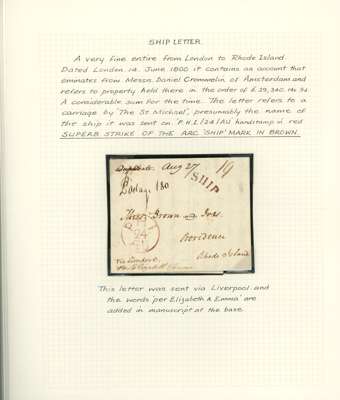 SHIP LETTER.
A very fine entire from London to Rhode Island.
Dated London, 14 June 1800 it contains as account that
eminates from Messrs Daniel Crommelin of Amsterdam and
refers to property held there in the order of £29,340.
A considerable sum for the time. The letter refers to a
carriage by 'The St. Michael', presumably the name of
the ship it was sent on. handstamp in red
SUPERB STRIKE OF THE ARC 'SHIP' MARK IN BROWN.
Aug 27 19
SHIP
180
Messrs Brown & Ives
Providence
Rhode Island
This letter was sent via Liverpool and
the words 'per Elizabeth & Emma' are
added in manuscript at the base.